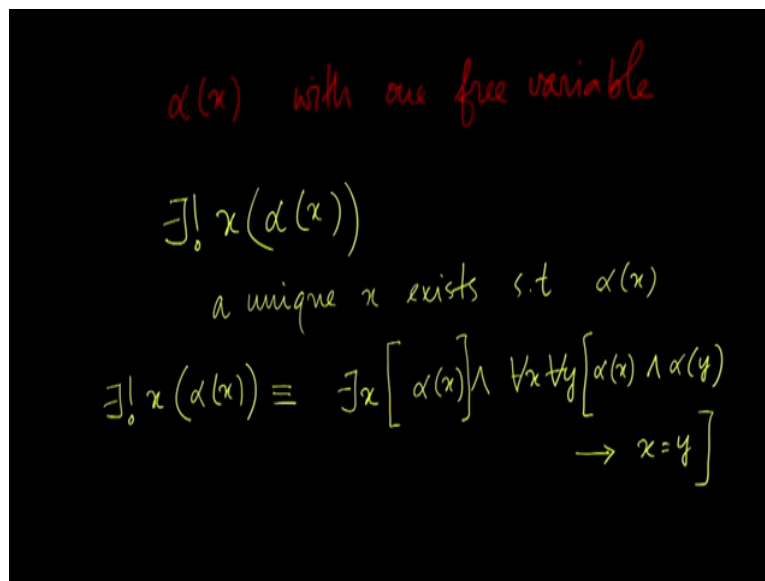 α(x) with one free variable
∃! x(α(x))
a unique x exists s.t α(x)
∃! x(α(x)) ≡ ∃x[α(x)] ∧ ∀x∀y[α(x) ∧ α(y)
→ x=y]